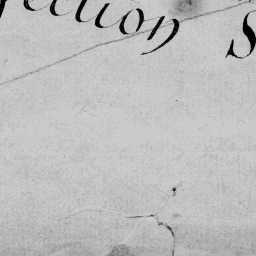 ection S